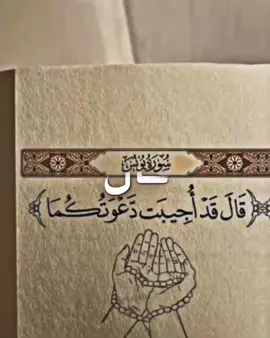 سُورَةُ يُونُسَ
قال
﴿قَالَ قَدْ أُجِيبَت دَّعْوَتُكُمَا﴾